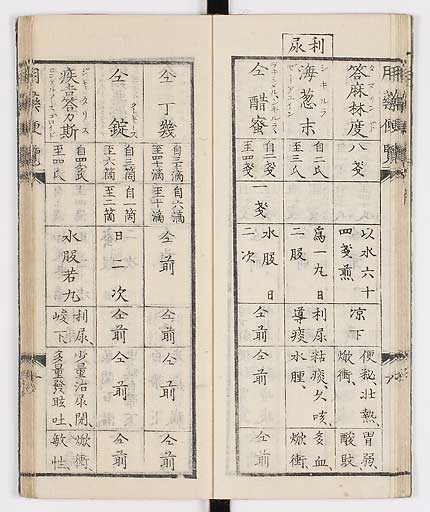 利尿
タマリンド
答麻林度
八戔
以水六十
四戔煎
凉下
便秘壮熱、
焮衝、
胃弱、
酸敗
シキルラ
海葱末
自二氏
至三氏
爲一九日
二服
利尿
導痰
粘痰、久咳、
水腫、
多血、
焮衝、
仝醋蜜
自二戔
至四戔
一戔
水服日
二次
仝前
仝前
仝前
仝丁幾
自三十滴
至四十滴
自六滴
至十滴
仝前
仝前
仝前
仝前
仝錠
自三箇
至六箇
自一箇
至二箇
日二次
仝前
仝前
仝前
ヂキタリス
疾吉答力斯
自四氏
至四氏
水服若丸
利尿
峻下
少量治尿閉、
多量發眩吐、
焮衝、
敏性、
用藥便覽